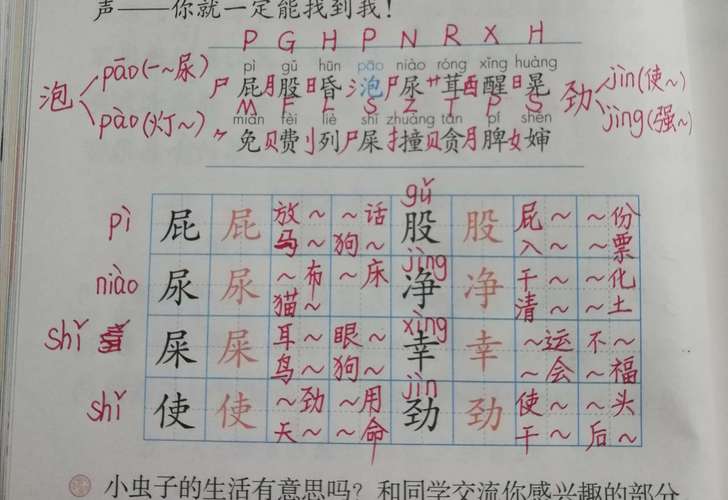 声——你就一定能找到我！
P G H P N R X H
pì gǔ hūn pāo niào róng xǐng huàng
尸屁月股日昏氵泡尸尿艹茸酉醒日晃
M F L S Z T P S
miǎn fèi liè shǐ zhuàng tān pí shěn
⺈免贝费刂列尸屎扌撞贝贪月脾女婶
泡 pāo(一~尿) pào(火丁~)
劲 jìn(使~) jìng(强~)
gǔ
pì 屁 屁 放~ ~话 股 股 屁~ ~份
马~ 狗~ 入~ ~票
jìng
niào 尿 尿 ~布 ~床 净 净 干~ ~化
猫~ 清~ ~土
xìng
shǐ 屎 屎 耳~ 眼~ 幸 幸 ~运 不~
鸟~ 狗~ ~会 ~福
jìn
shǐ 使 使 ~劲 ~用 劲 劲 使~ ~头
天~ ~命 干~ 后~
小虫子的生活有意思吗？和同学交流你感兴趣的部分